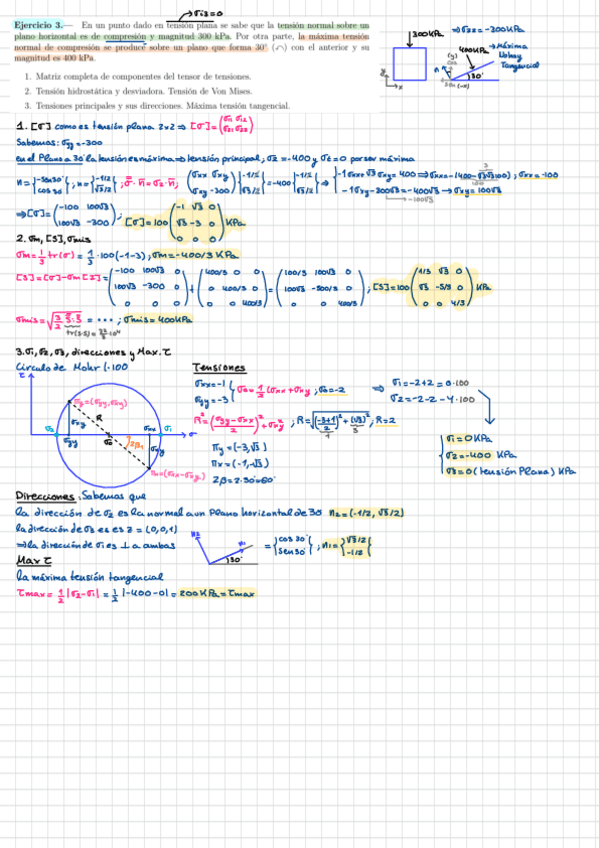 → σi3=0
Ejercicio 3.— En un punto dado en tensión plana se sabe que la tensión normal sobre un
plano horizontal es de compresión y magnitud 300 kPa. Por otra parte, la máxima tensión
normal de compresión se produce sobre un plano que forma 30° (↶) con el anterior y su
magnitud es 400 kPa.
300kPa ⇒σzz=-300kPa
400kPa → Máxima
No hay
Tangencial
30°
x
1. Matriz completa de componentes del tensor de tensiones.
2. Tensión hidrostática y desviadora. Tensión de Von Mises.
3. Tensiones principales y sus direcciones. Máxima tensión tangencial.
1. [σ] como es tensión plana 2x2 ⇒ [σ]=(σ11 σ12 / σ21 σ22)
Sabemos: σyy=-300
en el Plano a 30° la tensión es máxima ⇒ tensión principal, σ2=-400 y σt=0 por ser máxima
n={-sen30° / cos30°}; n={-1/2 / √3/2}; σ·n=σ2·n; (σxx σxy / σxy -300){-1/2 / √3/2}=-400{-1/2 / √3/2}
σxx=-100
-1σxy-300√3=-400√3 → σxy=100√3
⇒[σ]=(-100 100√3 / 100√3 -300); [σ]=100(-1 √3 0 / √3 -3 0 / 0 0 0) KPa
2. σm, [S], σmis
σm=1/3 tr(σ)=1/3·100(-1-3); σm=-400/3 KPa
[S]=[σ]-σm[δ]=(-100 100√3 0 / 100√3 -300 0 / 0 0 0)+(400/3 0 0 / 0 400/3 0 / 0 0 400/3)=(100/3 100√3 0 / 100√3 -500/3 0 / 0 0 400/3); [S]=100(1/3 √3 0 / √3 -5/3 0 / 0 0 4/3) KPa
σmis=√(3/2 S:S)= ···; σmis=400kPa
3. σ1, σ2, σ3, direcciones y Max. τ
Círculo de Mohr (·100
Tensiones
σxx=-1
σyy=-3
σo=1/2(σxx+σyy); σo=-2 ⇒ σ1=-2+2=0·100
σ2=-2-2=-4·100
R²=(σyy-σxx/2)²+σxy²; R=√((-3+1/2)²+(√3)²); R=2
Πy=(-3,√3)
Πx=(-1,-√3)
2β=2·30=60°
σ1=0KPa
σ2=-400 KPa
σ3=0 (tensión Plana) KPa
Direcciones, Sabemos que
la dirección de σ2 es la normal a un Plano horizontal de 30 n2=(-1/2, √3/2)
la dirección de σ3 es es z=(0,0,1)
⇒la dirección de σ1 es ⊥ a ambas
30° ={cos30° / sen30°}; n1={√3/2 / -1/2}
Max τ
la máxima tensión tangencial
τmax=1/2|σ2-σ1|=1/2|-400-0|=200KPa=τmax